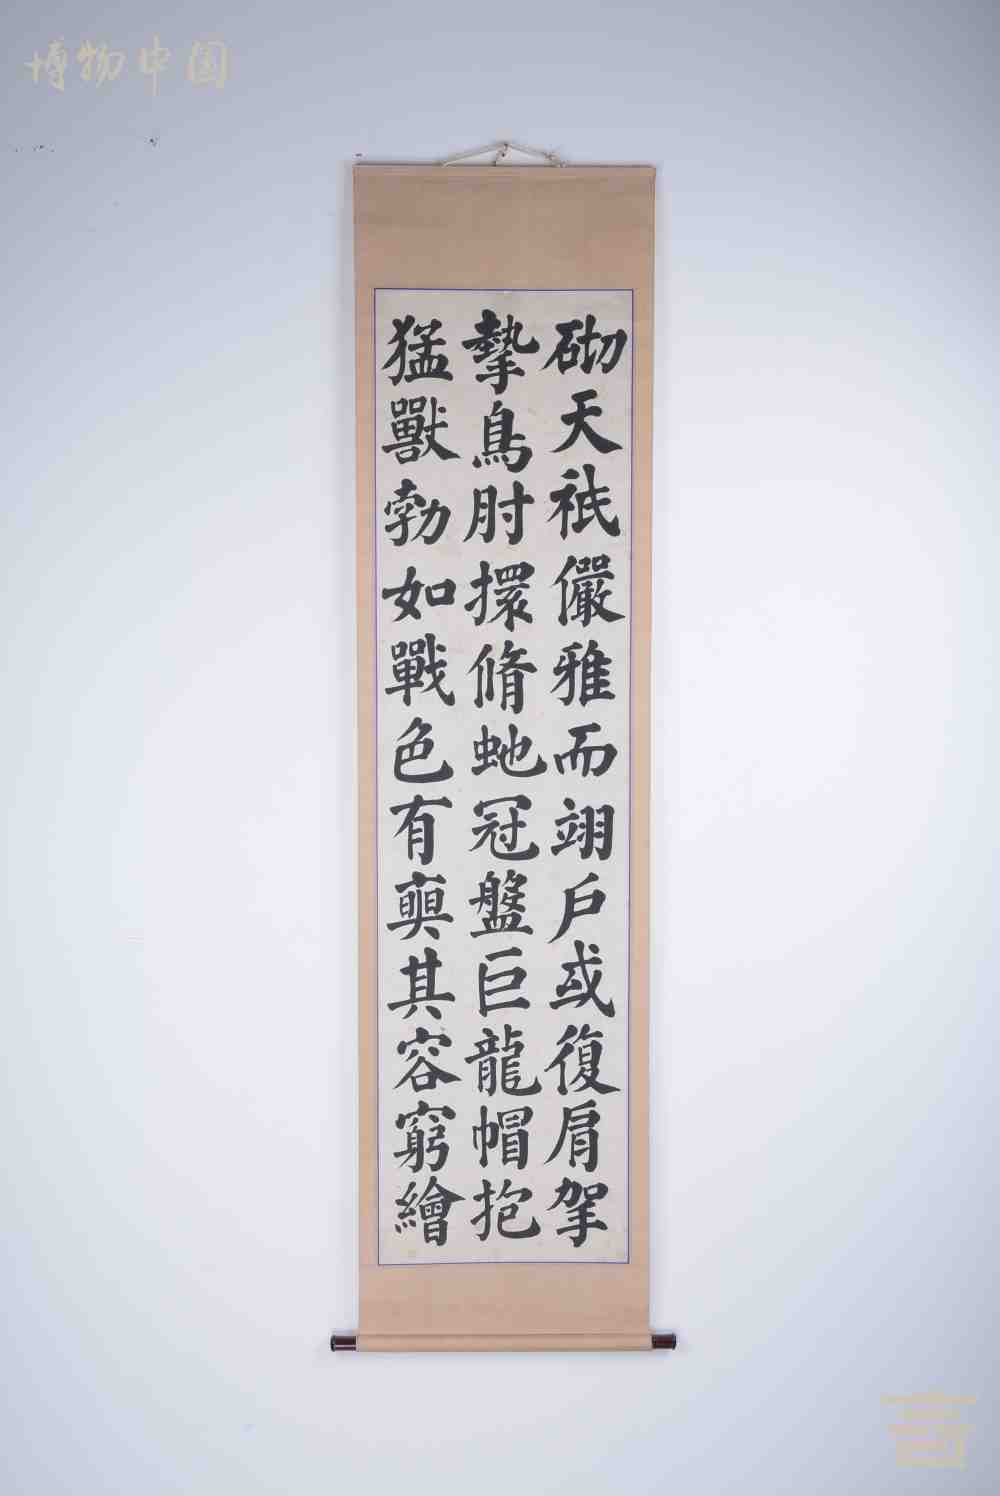 博物中国
砌天祇儼雅而翊戶或復肩挐
摯鳥肘擐脩虵冠盤巨龍帽抱
猛獸勃如戰色有奭其容窮繪